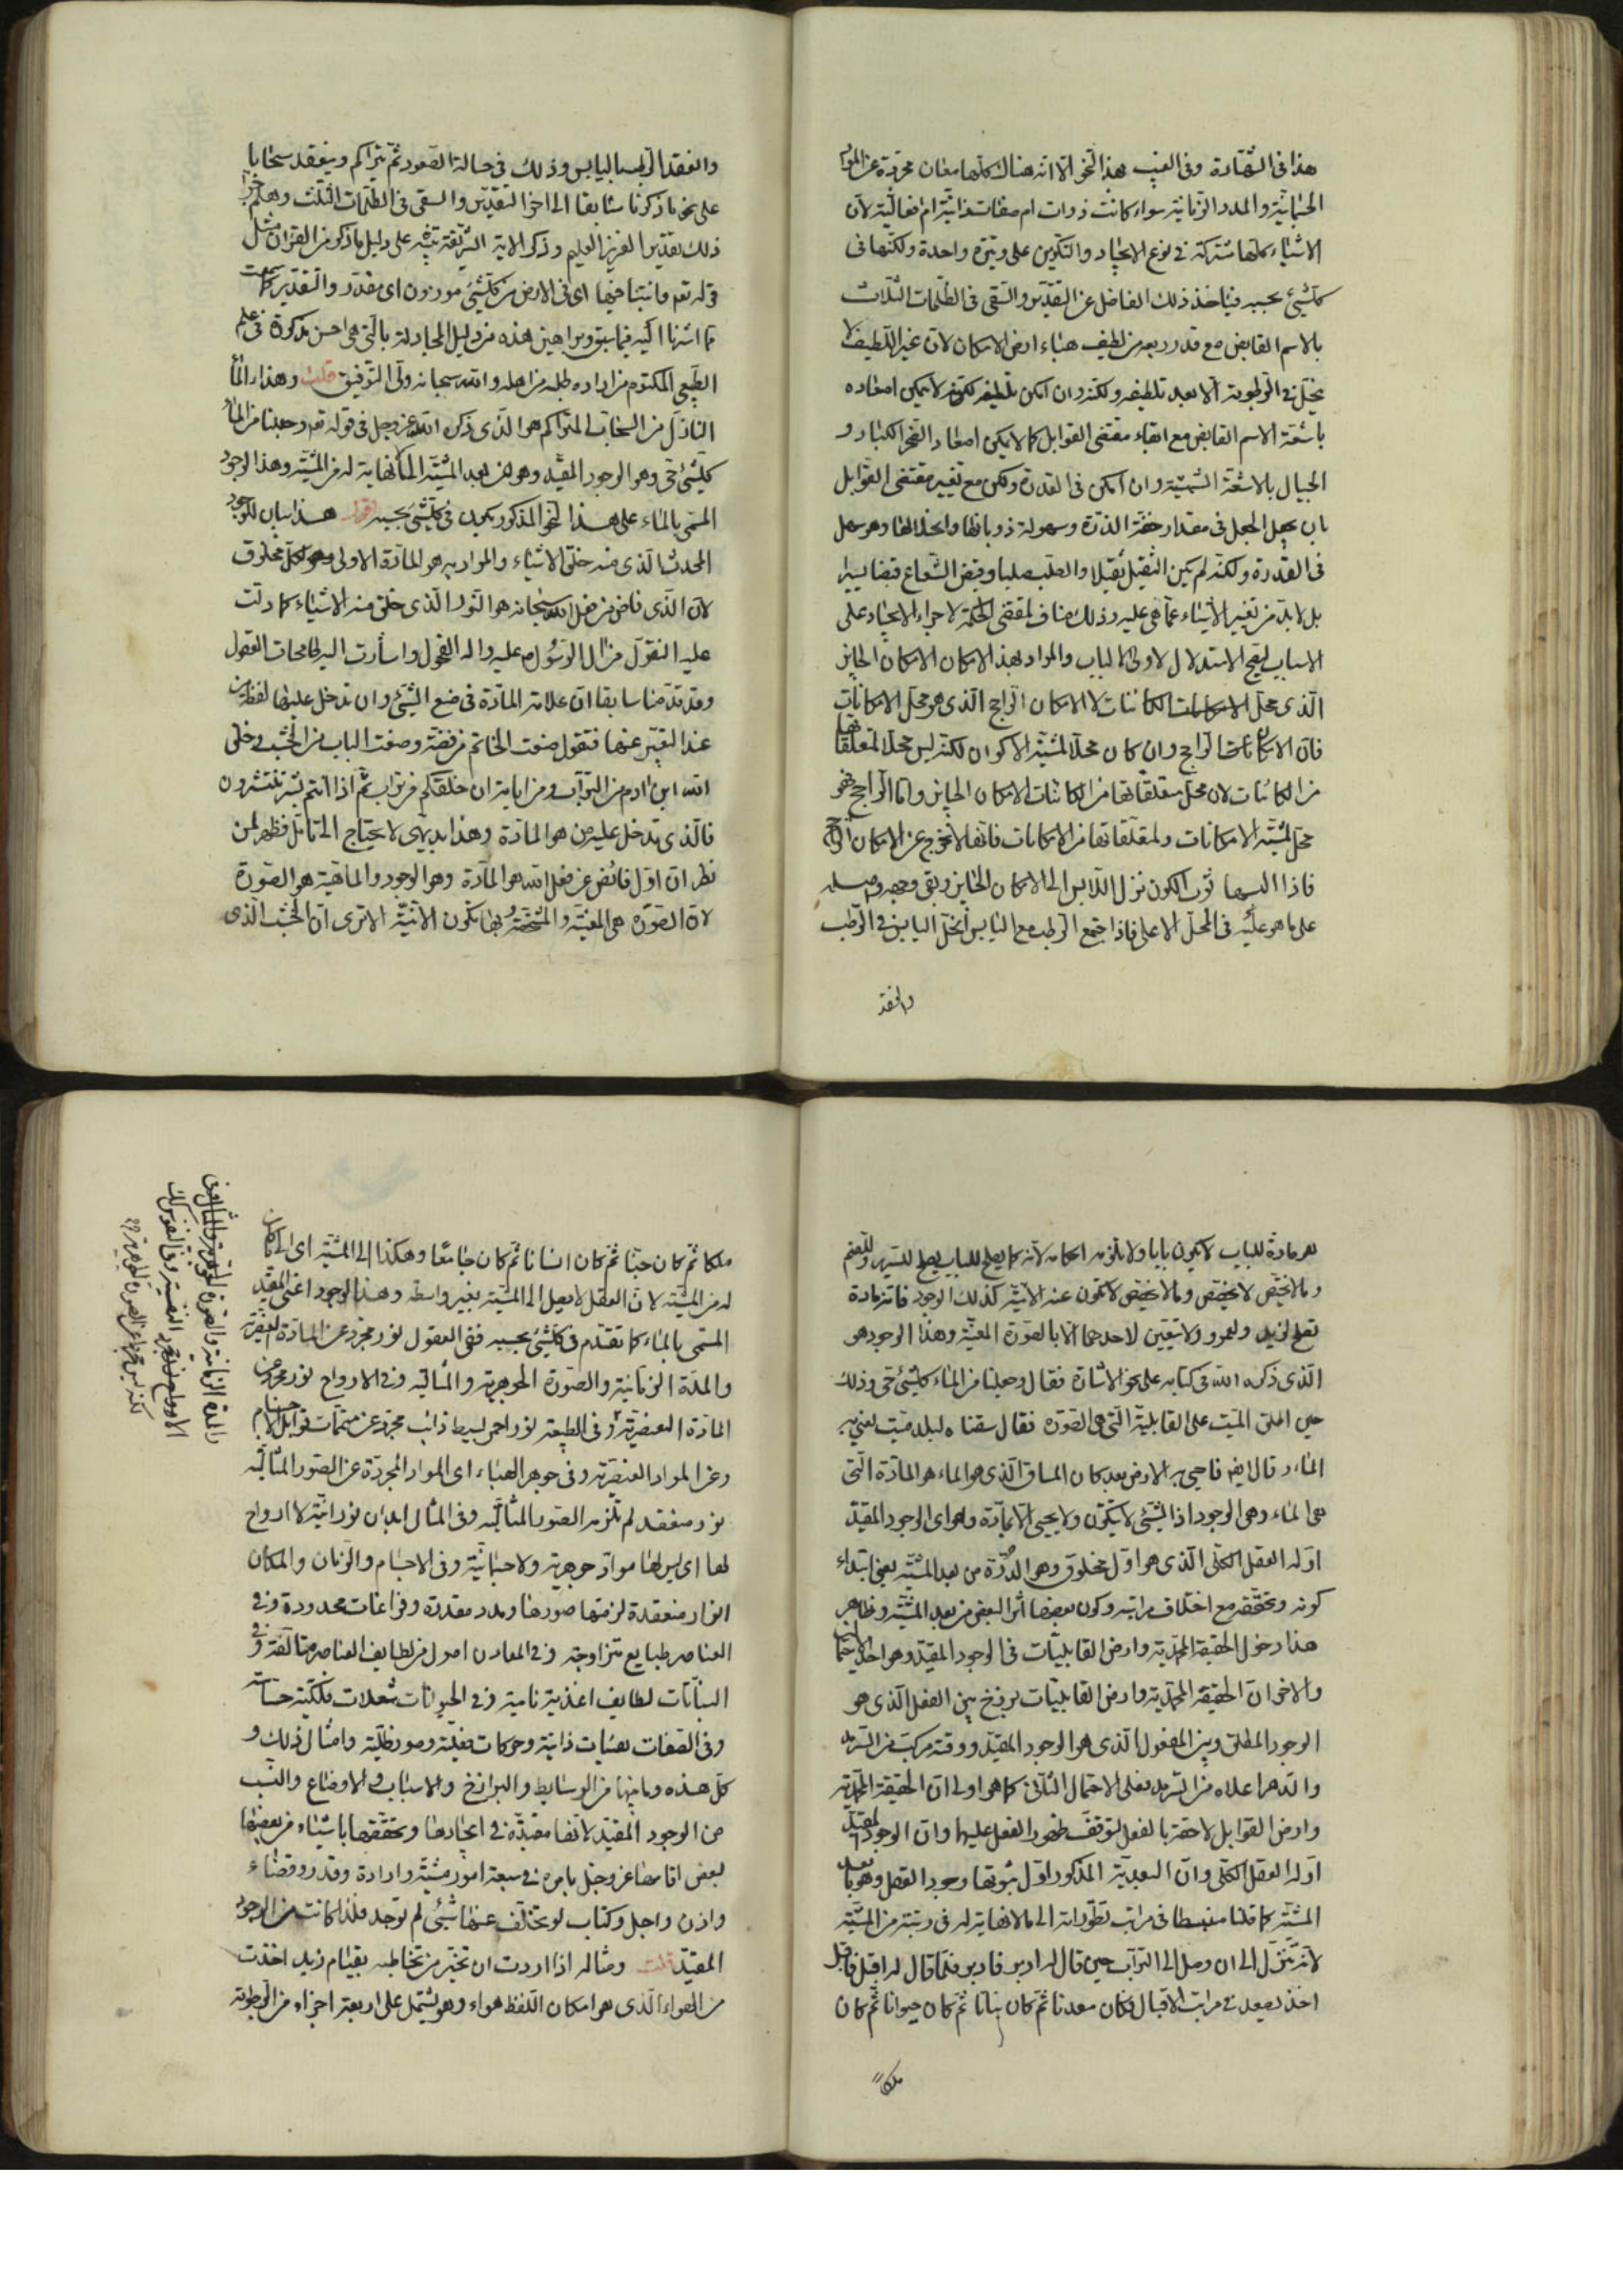 هذا فى الشهادة وفى الغيب بهذا النحو الا انه هناك كلها معان مجردة عن المواد
الجسمانية والمدد الزمانية سواء كانت ذوات ام صفات ذاتية ام فعالية لان
الاشياء كلها مشتركة فى نوع الايجاد والتكوين على وتيرة واحدة ولكنها فى
كلشئ بحسبه فياخذ ذلك الفاضل عن التقدير والسقى فى الظلمات الثلاث
بالاسم القابض مع قدر ربعه من لطيف هباء ارض الامكان لان غير اللطيف لا
ينحل فى الرطوبة الا بعد تلطيفه ولكنه وان امكن تلطيفه لكنه لا يمكن اصعاده
باشعة الاسم القابض مع ابقاء مقتضى القوابل كما لا يمكن اصعاد الصخر الكبار و
الجبال بالاشعة الشمسية وان امكن فى القدرة ولكن مع تغيير مقتضى القوابل
بان يجعل الجبل فى مقدار خفة الذرة وسهولة ذوبانها وانحلالها وهو سهل
فى القدرة ولكنه لم يكن الثقيل ثقيلا والصلب صلبا وقبض الشعاع قبضا يسيرا
بل لا بد من تغيير الاشياء عما هى عليه وذلك مناف لمقتضى الحكمة لاجراء الايجاد على
الاسباب ليصح الاستدلال لاولى الالباب والمراد بهذا الامكان الامكان الجايز
الذى محل الكائنات لا الامكان الراجح الذى هو محل الامكانات
فان الامكان الراجح وان كان محلا لمشية الاكوان لكنه ليس محلا لمتعلقاتها
من الكائنات لان محل متعلقاتها من الكائنات الامكان الجايز واما الراجح فهو
محل لمشية الامكانات ولمتعلقاتها من الامكانات فانها لا تخرج عن الامكان الراجح
فاذا البسها ثوب الكون نزل اللابس الى الامكان الجايز وبقى وجهه واصله
على ما هو عليه فى المحل الاعلى فاذا اجتمع الرطب مع اليابس انحل اليابس فى الرطب
وانعقد
وانعقد الرطب باليابس وذلك فى حالة الصعود ثم يتراكم وينعقد سحابا
على نحو ما ذكرنا سابقا الى اخر التقدير والسقى فى الظلمات الثلث وهلم جرا
ذلك تقدير العزيز العليم وذكر الاية الشريفة تنبيه على دليل ما ذكر من القران مثل
قوله تعم وانبتنا فيها اى فى الارض من كلشئ موزون اى مقدر والتقدير كما سمعت
مما اشرنا اليه فيما سبق وبراهين هذه من دليل المجادلة بالتى هى احسن مذكورة فى علم
الطبيعى المكتوم من اراده طلبه من اهله والله سبحانه ولى التوفيق قلت وهذا الماء
النازل من السحاب المتراكم هو الذى ذكره الله عز وجل فى قوله تعم وجعلنا من الماء
كلشئ حى وهو الوجود المقيد وهو من بعد المشية الى ما لا نهاية له من المشية وهذا الوجود
المسمى بالماء على هذا النحو المذكور يكون فى كلشئ بحسبه اقول هذا بيان للوجود
المحدث الذى منه خلق الاشياء والمراد به هو المادة الاولى لكل مخلوق
لان الذى فاض من فعل الله سبحانه هو النور الذى خلق منه الاشياء كما دلت
عليه النقول من ال الرسول صلى عليه واله الفحول واشارت اليه طامحات العقول
وقد قدمنا سابقا ان علامة المادة فى صنع الشئ وان تدخل عليها لفظة من
عند التعبير عنها فتقول صنعت الخاتم من فضة وصنعت الباب من الخشب وخلق
الله ابن ادم من التراب ومن اياته ان خلقكم من تراب ثم اذا انتم بشر تنتشرون
فالذى تدخل عليه من هو المادة وهذا بديهى لا يحتاج الى تامل فظهر لمن
نظر ان اول فائض عن فعل الله هو المادة وهو الوجود والماهية هو الصورة
لان الصورة هى المعينة والمشخصة وبها تكون الانية الا ترى ان الخشب الذى
هو مادة للباب لا يكون بابا ولا تلزمه احكامه لانه كما يصلح للباب يصلح للسرير وللصنم
وما لا يختص لا يخصص وما لا يخصص لا تكون عنه الانية كذلك الوجود فانه مادة
تصلح لزيد ولعمرو ولا تتعين لاحدهما الا بالصورة المعينة وهذا الوجود هو
الذى ذكره الله فى كتابه على نحو الاشارة فقال وجعلنا من الماء كلشئ حى وذلك
حين اطلق الميت على القابلية التى هى الصورة فقال سقناه لبلد ميت يعنى به
الماء وقال ايض فاحيى به الارض بعد فكان المساق الذى هو الماء هو المادة التى
هى الماء وهى الوجود اذ الشئ لا يتكون ولا يحيى الا بمادة وهو اى الوجود المقيد
اوله العقل الكلى الذى هو اول مخلوق وهو الدرة من بعد المشية يعنى ابتداء
كونه وتحققه مع اختلاف مراتبه وكون بعضها اثر البعض من بعد المشية وظاهر
هذا دخول الحقيقة المحمدية وارض القابليات فى الوجود المقيد وهو احد الاحتمالين
والاخر ان الحقيقة المحمدية وارض القابليات برزخ بين الفعل الذى هو
الوجود المطلق وبين المفعول الذى هو الوجود المقيد ووقته مركب من السرمد
والدهر اعلاه من السرمد فعلى الاحتمال الثانى كما هو اولى ان الحقيقة المحمدية
وارض القوابل لاحقة بالفعل لتوقف ظهور الفعل عليها وان الوجود المقيد
اوله العقل الكلى وان البعدية المذكور اول ثبوتها وجود العقل وهو ما بعد
المشية كما قلنا منبسطا فى مراتب تطوراته الى ما لا نهاية له فى رتبته من المشية
لانه تنزل الى ان وصل الى التراب حين قال له ادبر فادبر فلما قال له اقبل فاقبل
اخذ يصعد فى مراتب الاقبال فكان معدنا ثم كان نباتا ثم كان حيوانا ثم كان
ملكا
ملكا ثم كان جنا ثم كان انسانا ثم كان جامعا وهكذا الى المشية
له من المشية لان العقل لا يصل الى المشية بغير واسطة وهذا الوجود اعنى المقيد
المسمى بالماء كما تقدم فى كلشئ بحسبه ففى العقول نور مجرد عن المادة العنصرية
والمدة الزمانية والصورة الجوهرية والمثالية وفى الارواح نور مجرد عن
المادة العنصرية وفى الطبيعة نور احمر بسيط ذائب مجرد عن متممات قوابل الاجسام
وعن المواد العنصرية وفى جوهر الهباء اى المواد المجردة عن الصور المثالية
نور منعقد لم تلزمه الصور المثالية وفى المثال ابدان نورانية لا ارواح
لها اى ليس لها مواد جوهرية ولا جسمانية وفى الاجسام والزمان والمكان
انوار منعقدة لزمتها صورها ومدد مقدرة وفراغات محدودة وفى
العناصر طبايع متزاوجة وفى المعادن اصول من لطايف العناصر متالفة وفى
النباتات لطايف اغذية نامية وفى الحيوانات شعلات فلكية حساسة
وفى الصفات هيئات ذاتية وحركات فعلية وصور ظلية وامثال ذلك و
كل هذه وما بينها من الوسايط والبرازخ والاسباب والاوضاع والنسب
من الوجود المقيد لانها مقيدة فى ايجادها وتحققها باشياء من بعضها
لبعض اقامها عز وجل بامره فى سبعة امور مشية وارادة وقدر وقضاء
واذن واجل وكتاب لو تخلف عنها شئ لم توجد فلذا كانت من الوجود
المقيد قلت ومثاله اذا اردت ان تخبر من تخاطبه بقيام زيد اخذت
من الهواء الذى هو امكان اللفظ هواء وهو يشتمل على اربعة اجزاء من الرطوبة